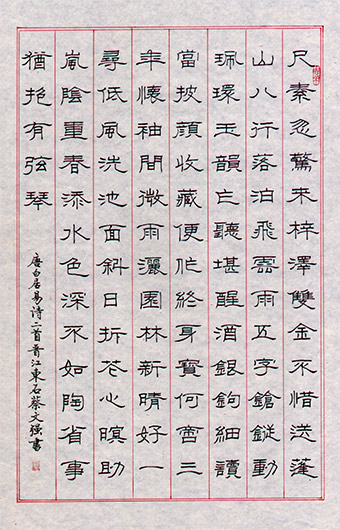 尺素忽驚來梓澤雙金不惜送蓬
山八行落泊飛雲雨五字鎗鏦動
珮環玉韻乍聽堪醒酒銀鉤細讀
當披顏收藏便作終身寶何啻三
年懷袖間微雨灑園林新晴好一
尋低風洗池面斜日拆花心暝助
嵐陰重春添水色深不如陶省事
猶抱有弦琴
唐白居易诗二首晋江東石蔡文强書